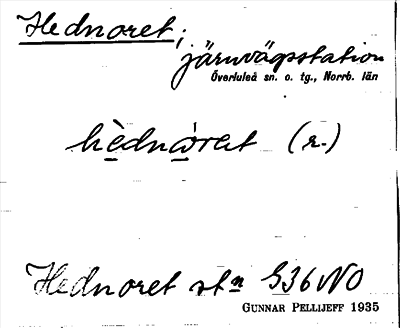 Hednoret;
järnvägsstation
Överluleå sn. o. tg., Norrb. län
hèdnòret (r.)
Hednoret stn G36NO
GUNNAR PELLIJEFF 1935